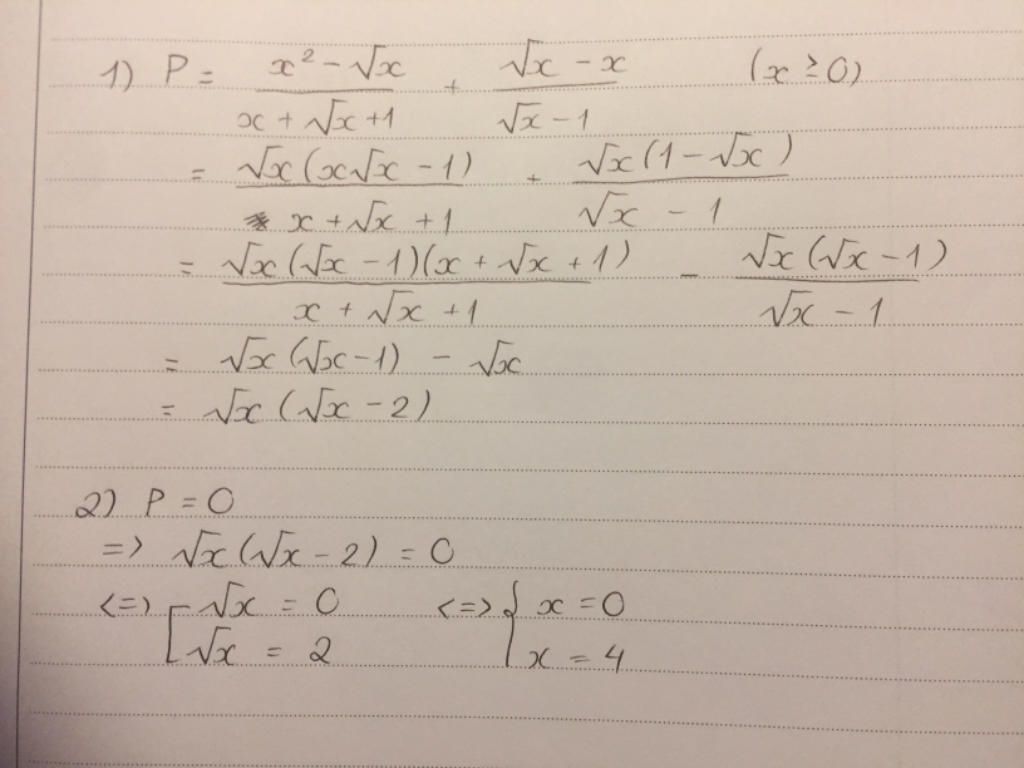 1) P = (x² - √x)/(x + √x + 1) + (√x - x)/(√x - 1) (x ≥ 0)
= √x(x√x - 1)/(x + √x + 1) + √x(1 - √x)/(√x - 1)
= √x(√x - 1)(x + √x + 1)/(x + √x + 1) - √x(√x - 1)/(√x - 1)
= √x(√x - 1) - √x
= √x(√x - 2)
2) P = 0
=> √x(√x - 2) = 0
<=> [ √x = 0 <=> { x = 0
√x = 2 x = 4